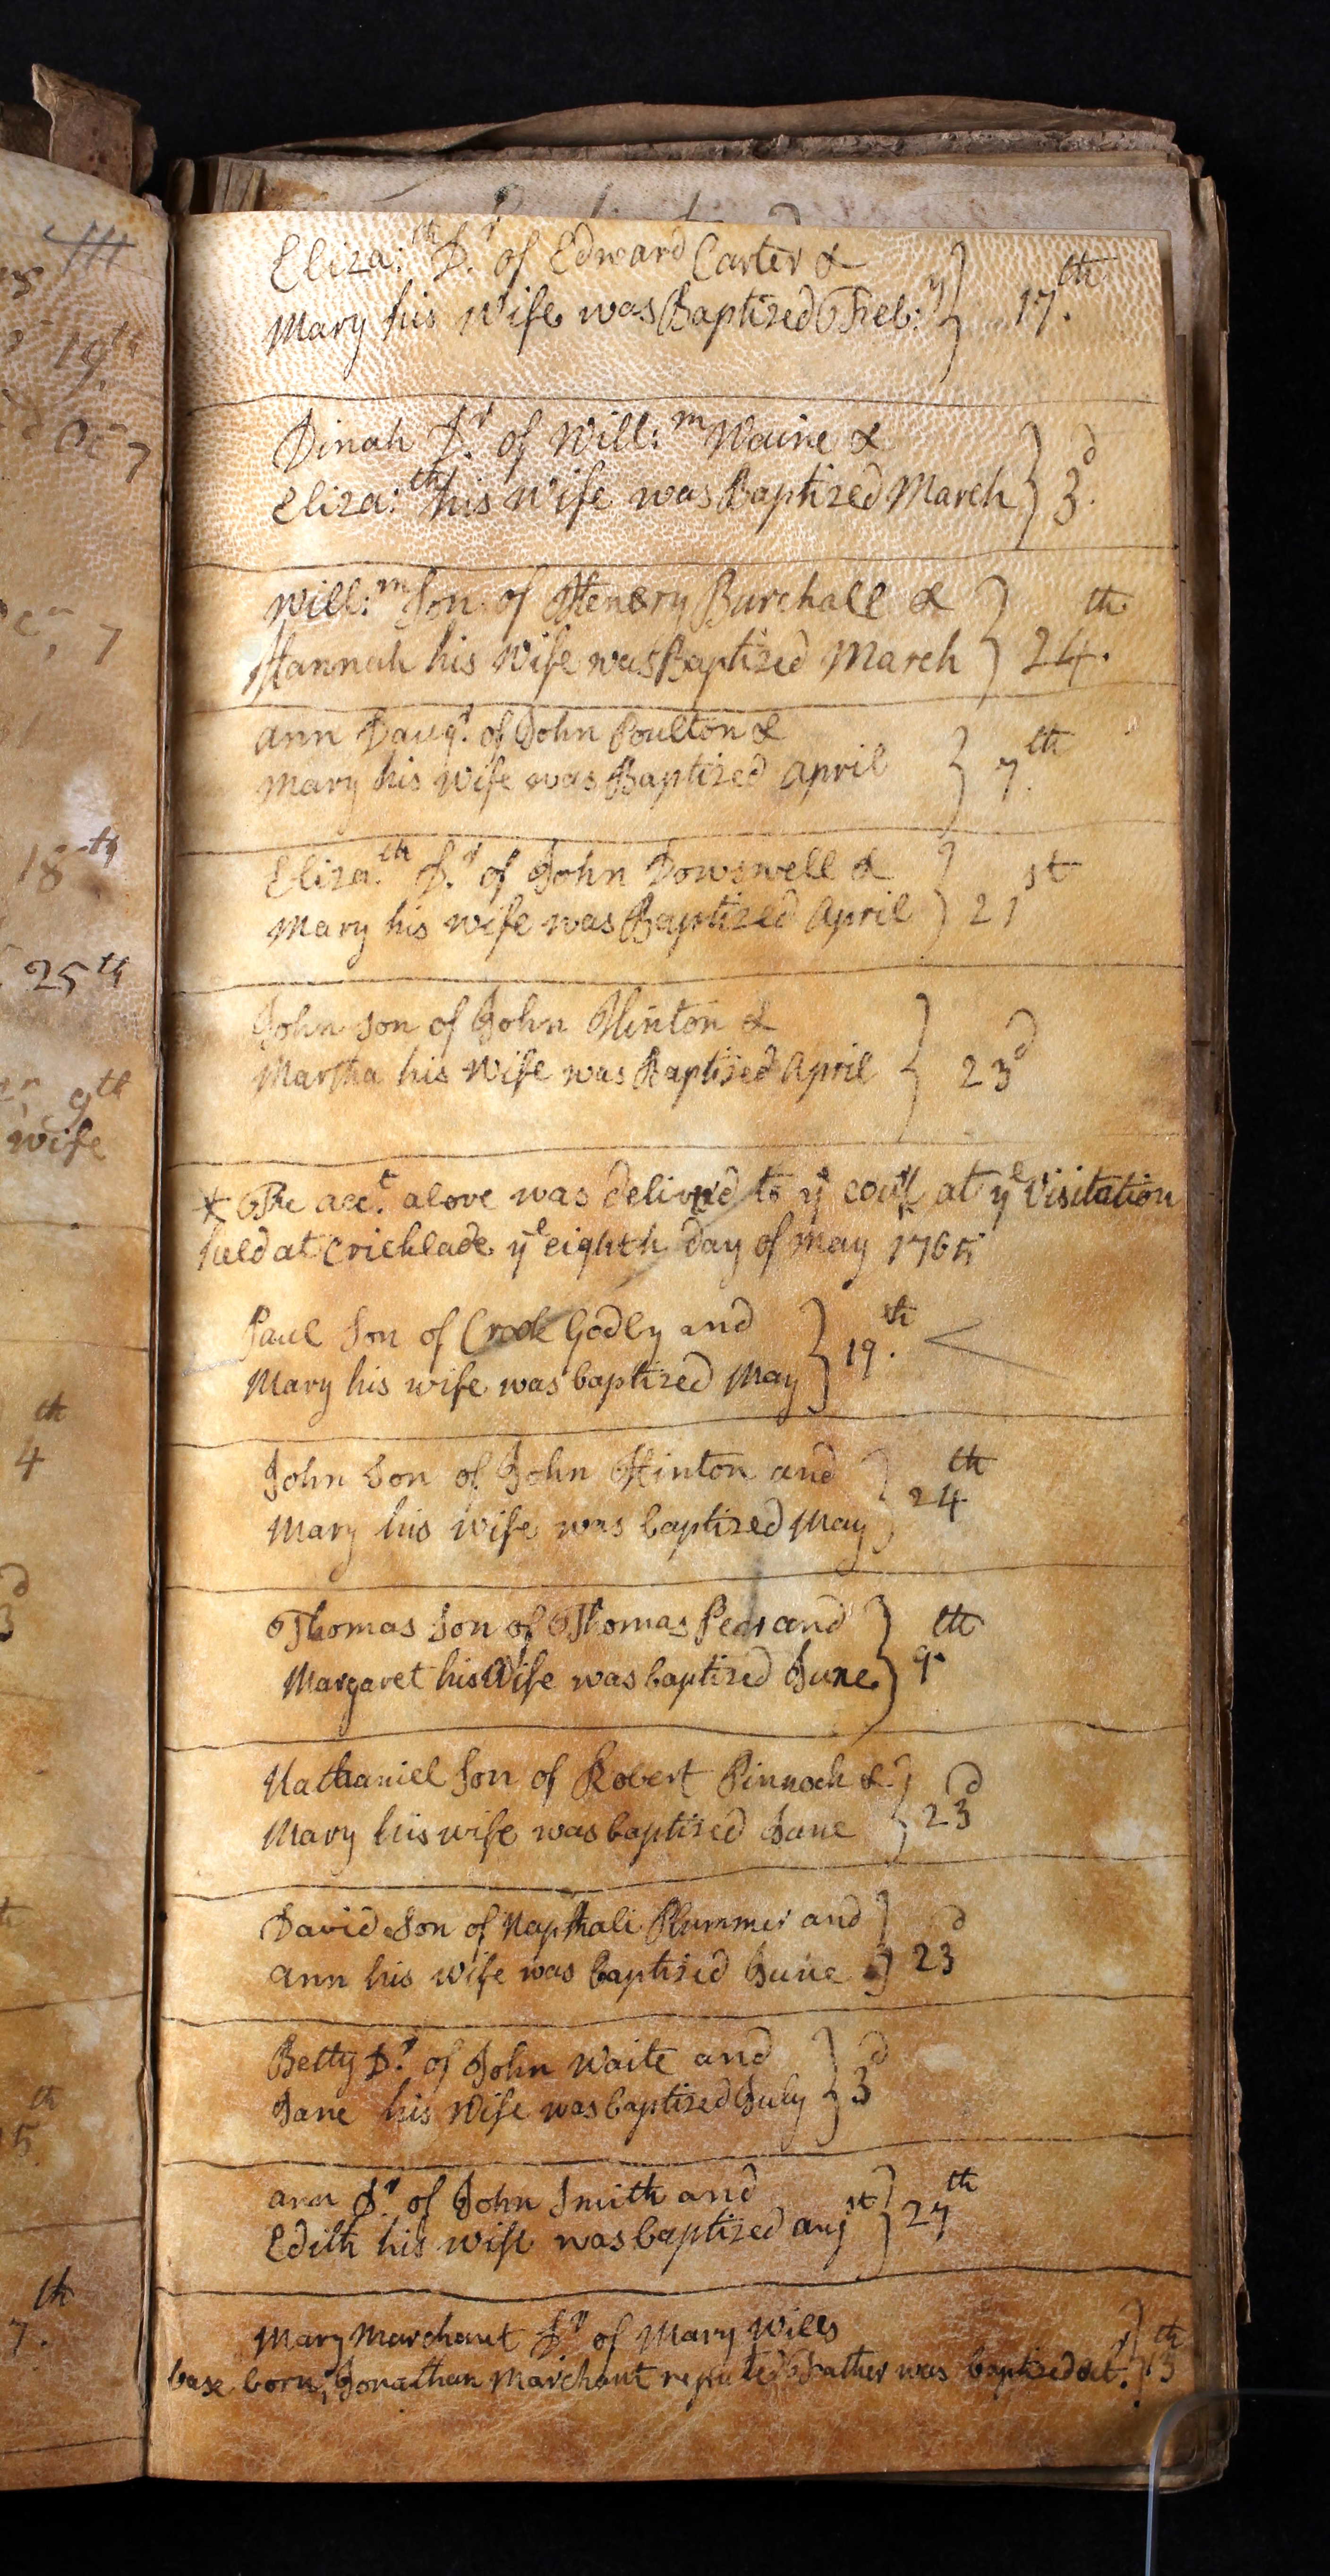 Eliza:th Dr. of Edward Carter &
Mary his Wife was Baptized Feb:ry } 17.th
Dinah Dr. of Will:m Waine &
Eliza:th his Wife was Baptized March } 3.d
Will:m Son of Henery Burchall &
Hannah his Wife was Baptized March } 24.th
Ann Daugr. of John Poulton &
Mary his Wife was Baptized April } 7.th
Eliza.th Dr. of John Dowswell &
Mary his Wife was Baptized April } 21st
John Son of John Hinton &
Martha his Wife was Baptized April } 23d
The acct. above was deliver'd to ye at ye Visitation
held at Cricklade ye eighth day of May 1765
Paul Son of Crook Godly and
Mary his wife was baptized May } 19.th
John Son of John Hinton and
Mary his wife was baptized May } 24th
Thomas Son of Thomas and
Margaret his Wife was baptized June } 9.th
Nathaniel Son of Robert Pinnock &
Mary his wife was baptized June } 23d
David Son of Napthali Plummer and
Ann his wife was baptized June } 23d
Betty Dr. of John Waite and
Jane his Wife was baptized July } 3d
ann Dr. of John Smith and
Edith his wife was baptized augst } 27th
Mary Marchant Dr of Mary Wills
base born, Jonathan Marchant reputed Father was baptized oct. } 13th
19th
7
18th
25th
9th
wife
th
4
th
5
th
7.